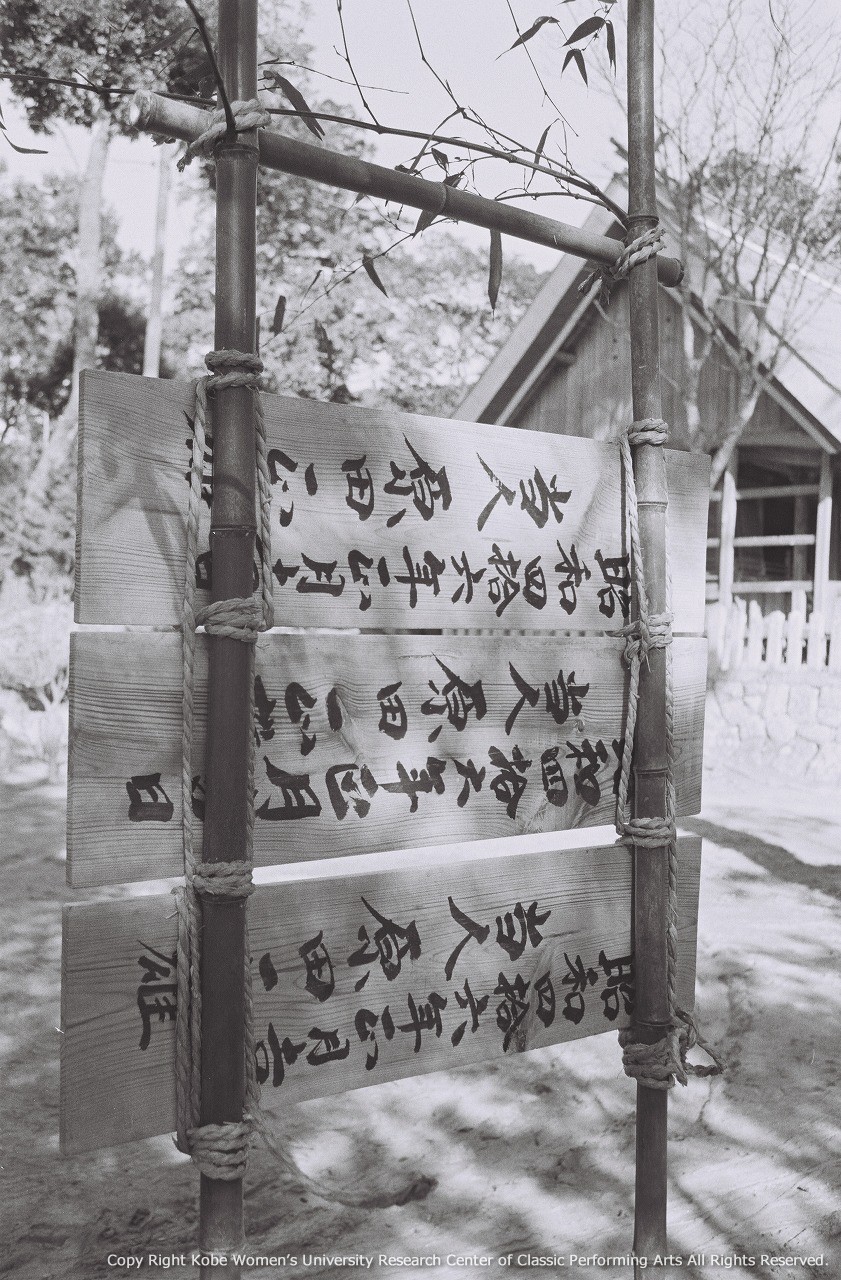 昭和四拾六年正月七日
当人 原田正
和四拾六年正月 日
当人 原田正雄
昭和四拾六年正月吉
当人 原田 雄
Copy Right Kobe Women's University Research Center of Classic Performing Arts All Rights Reserved.